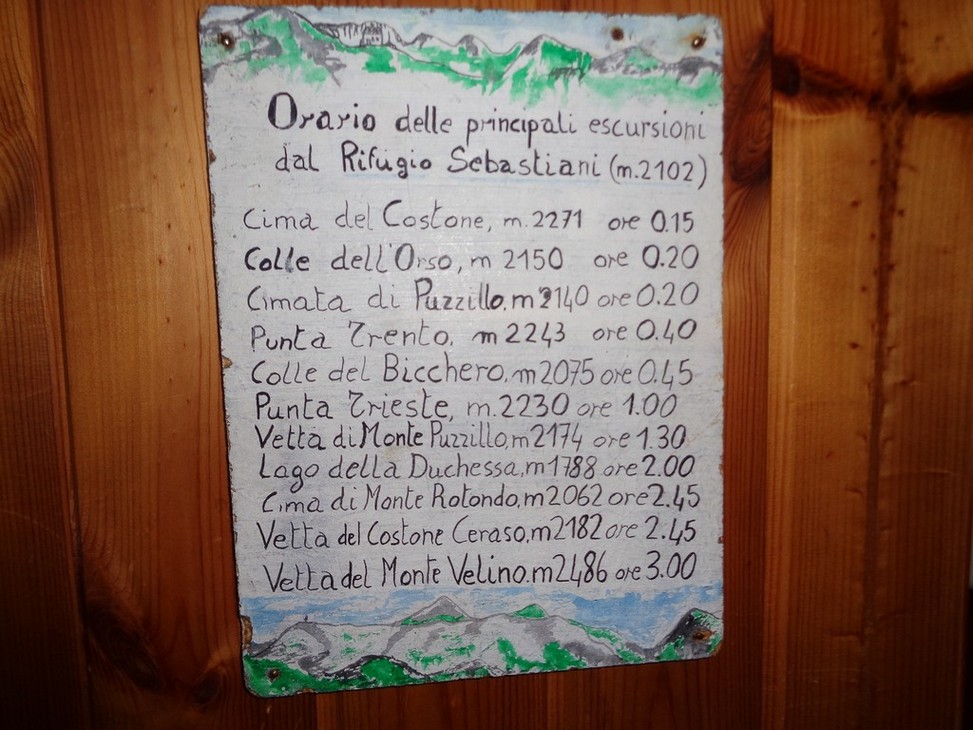 Orario delle principali escursioni
dal Rifugio Sebastiani (m.2102)
Cima del Costone, m.2271 ore 0.15
Colle dell'Orso, m 2150 ore 0.20
Cimata di Puzzillo, m 2140 ore 0.20
Punta Trento, m 2243 ore 0.40
Colle del Bicchero, m 2075 ore 0.45
Punta Trieste, m.2230 ore 1.00
Vetta di Monte Puzzillo, m 2174 ore 1.30
Lago della Duchessa, m 1788 ore 2.00
Cima di Monte Rotondo, m 2062 ore 2.45
Vetta del Costone Ceraso, m 2182 ore 2.45
Vetta del Monte Velino. m 2486 ore 3.00